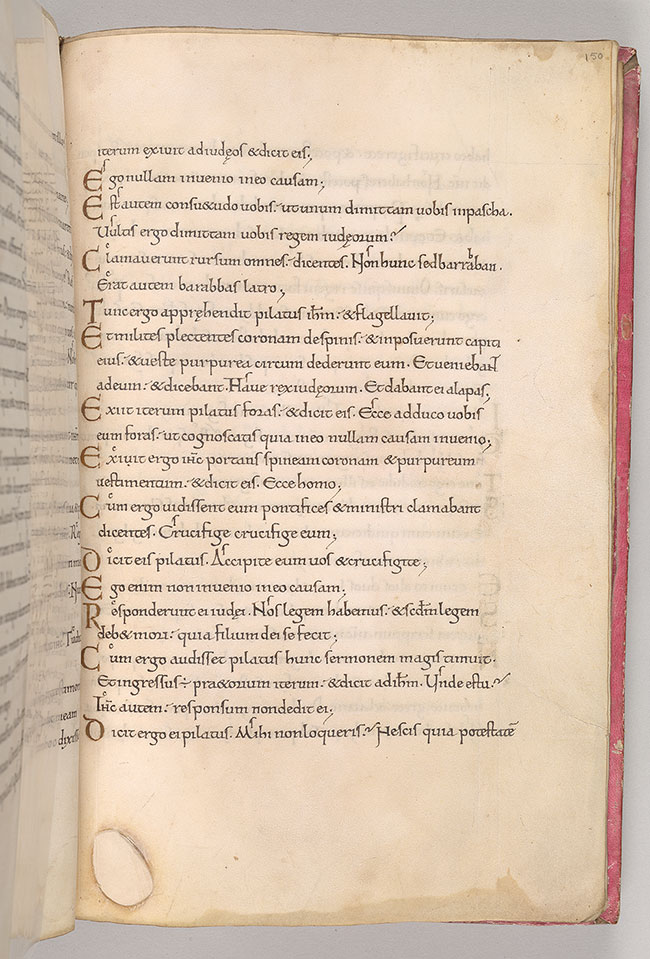 150
iterum exiuit ad iudęos & dicit eis;
Ego nullam inuenio in eo causam;
Est autem consu&udo uobis. ut unum dimittam uobis in pascha.
Uultis ergo dimittam uobis regem iudęorum?
Clamauerunt rursum omnes. dicentes. Non hunc sed barraban.
Erat autem barabbas latro;
Tunc ergo apprehendit pilatus ihm. & flagellauit;
Et milites plectentes coronam de spinis. & inposuerunt capiti
eius. & ueste purpurea circum dederunt eum. Et ueniebant
ad eum. & dicebant. Haue rex iudęorum. Et dabant ei alapas;
Exiit iterum pilatus foras. & dicit eis. Ecce adduco uobis
eum foras. ut cognoscatis quia in eo nullam causam inuenio;
Exiuit ergo ihc portans spineam coronam & purpureum
uestimentum. & dicit eis. Ecce homo;
Cum ergo uidissent eum pontifices & ministri clamabant
dicentes. Crucifige crucifige eum;
Dicit eis pilatus. Accipite eum uos & crucifigite;
Ego enim non inuenio in eo causam;
Responderunt ei iudęi. Nos legem habemus. & scdm legem
deb& mori. quia filium dei se fecit;
Cum ergo audisset pilatus hunc sermonem magis timuit.
Et ingressus ÷ pr&orium iterum. & dicit ad ihm. Unde es tu?
Ihc autem. responsum non dedit ei;
Dicit ergo ei pilatus. Mihi non loqueris? Nescis quia potestatē